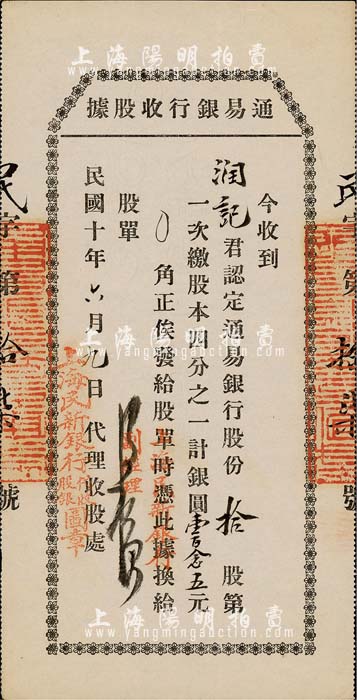 上海陽明拍賣
www.yangmingauction.com
通易銀行收股據
今收到
潤記君認定通易銀行股份拾股第
一次繳股本四分之一計銀圓壹百念五元
〇角正俟發給股單時憑此據換給
股單
民國十年六月九日代理收股處
上海民新銀行代收股款圖章
民字第拾
號
上海陽明拍賣
www.yangmingauction.com
上海陽明拍賣
www.yangmingauction.com